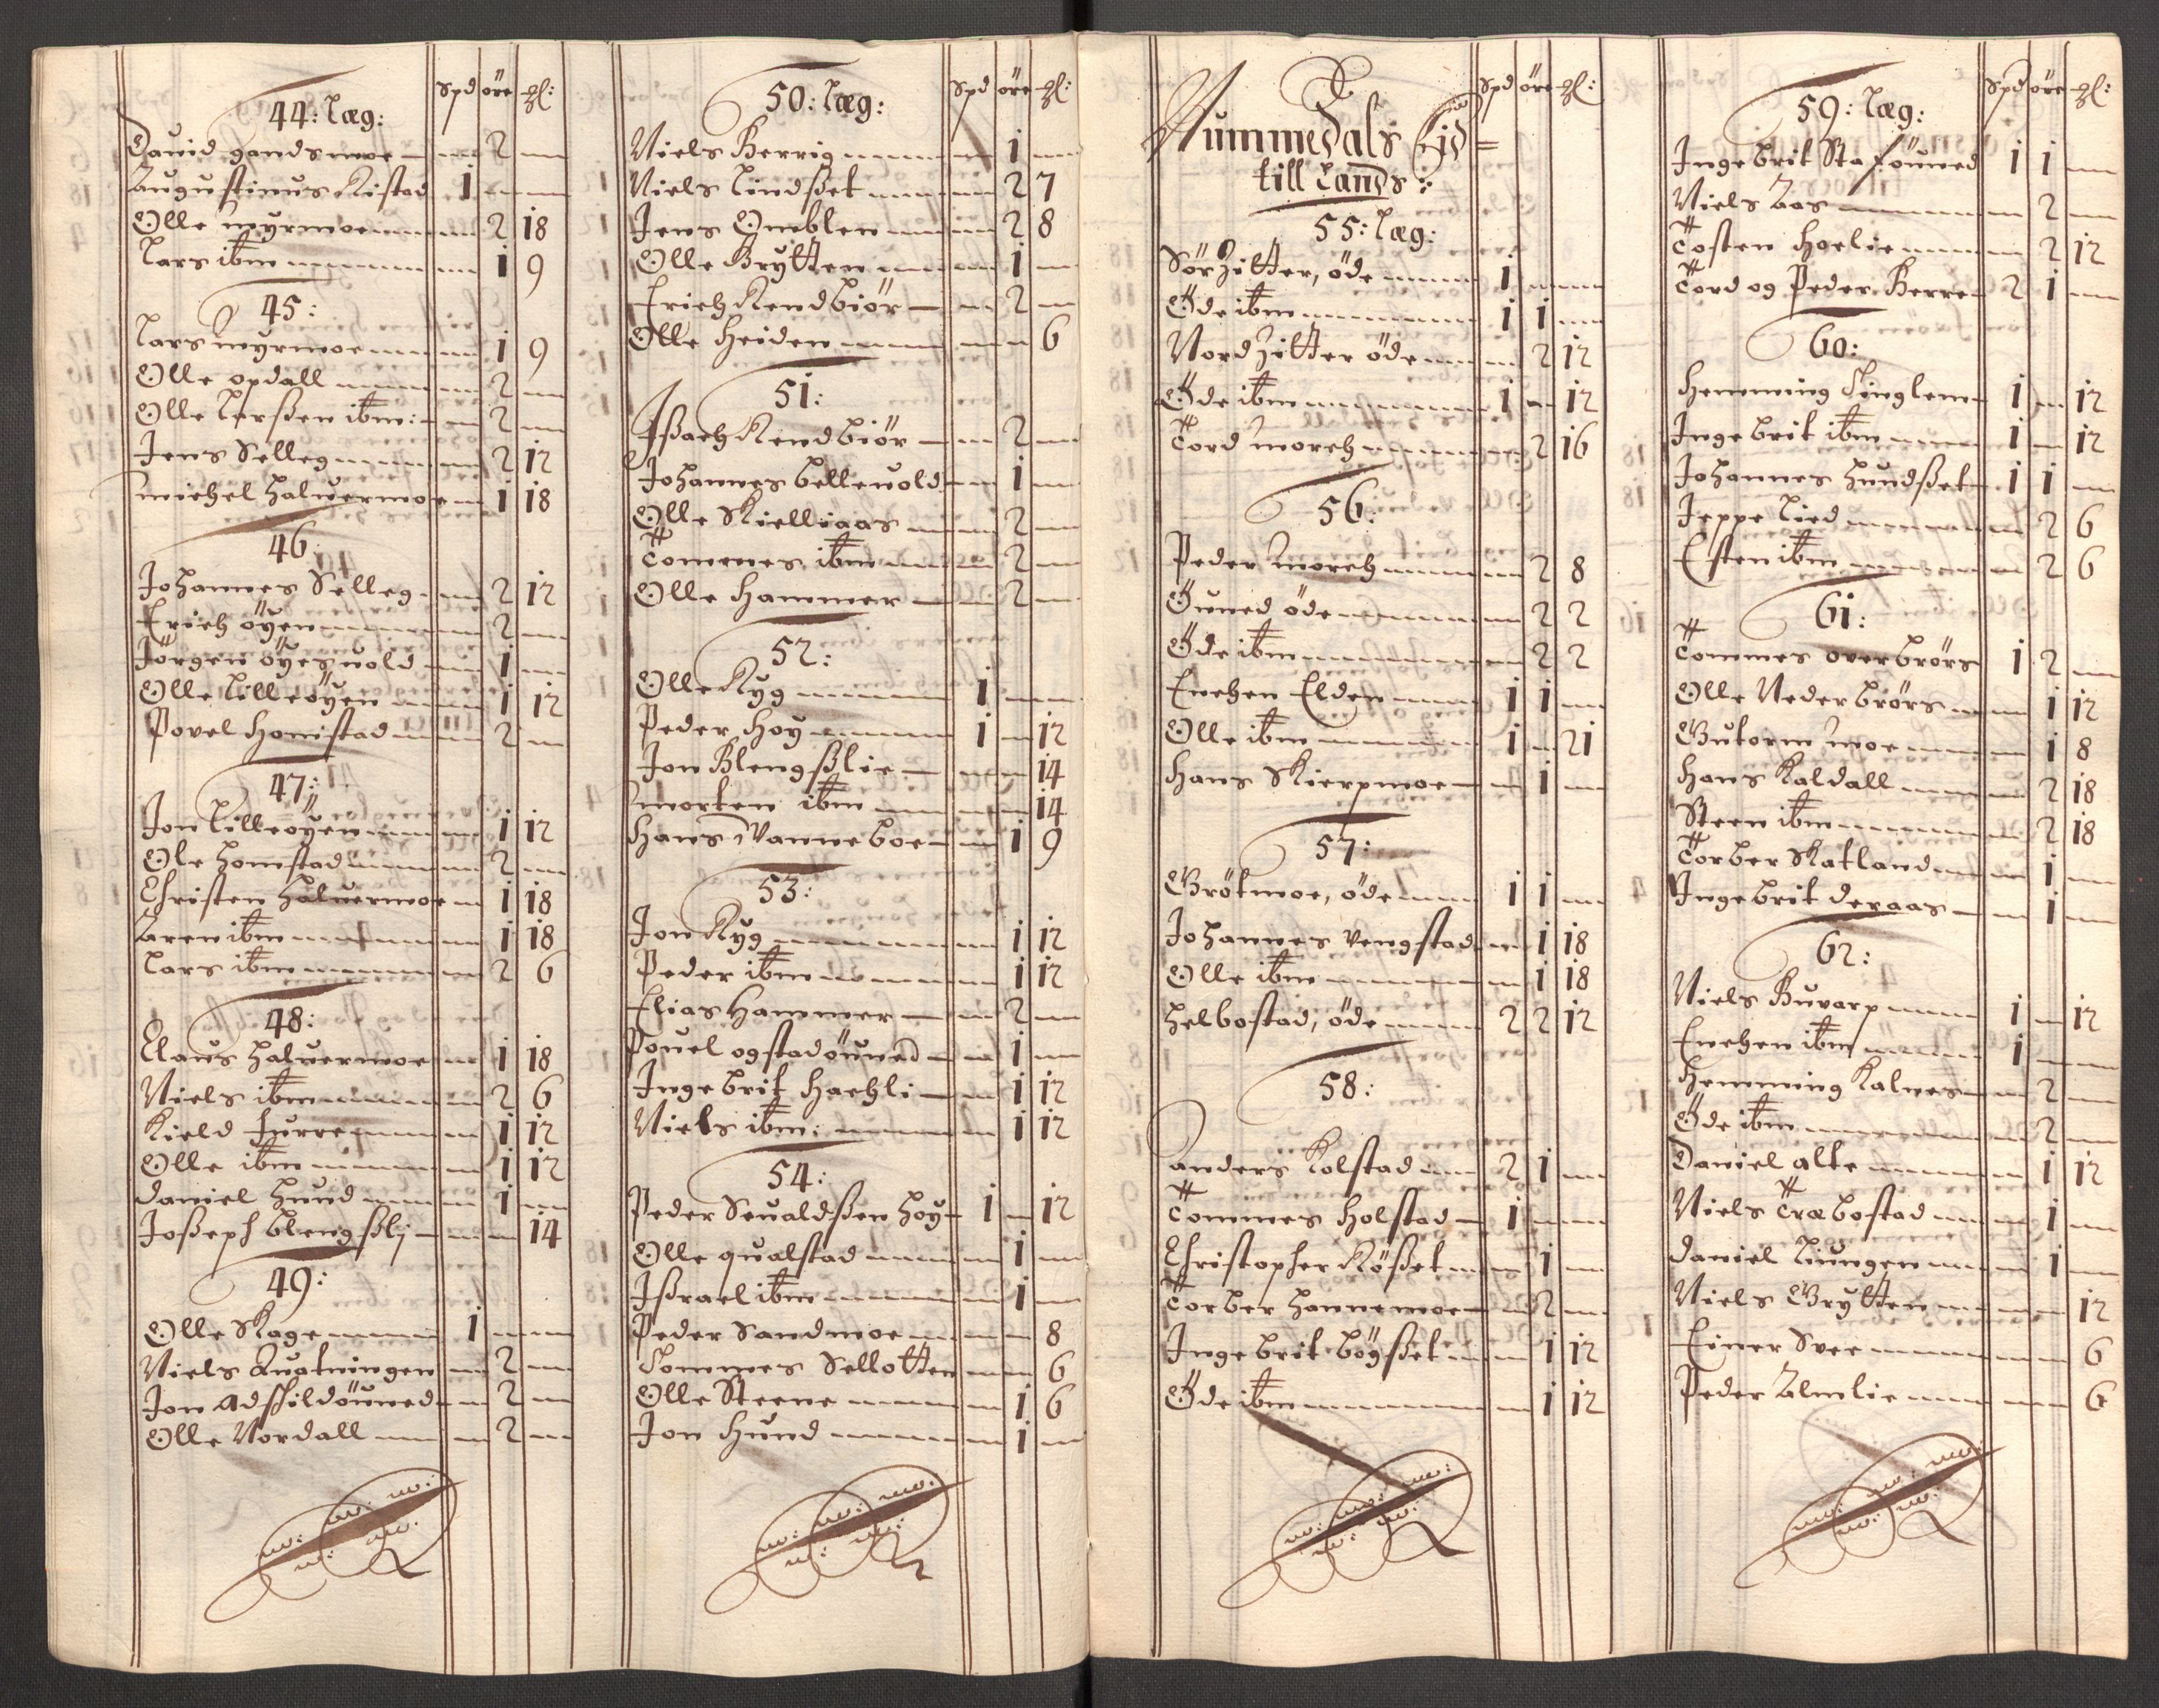 Spd öre ɱl:
44: Læg:
Dauid gandsmoe 2
Augustinus Kistad 1
Olle Myrmoe 2 18
Lars ibm 1 9
45:
Lars Myrmoe 1 9
Olle opdall 2
Olle Larßen ibm: 2
Jens Selleg 2 12
Michel Halvermoe 1 18
46
Johannes Selleg 2 12
Erich öyen 2
Jörgen öyesvold 1
Olle Lilleöyen 1 12
Povel Homstad 2
47:
Jon Lilleöyen 1 12
Ole Homstad 2
Christen Halvermoe 1 18
Aren ibm 1 18
Lars ibm 2 6
48:
Claus Halvermoe 1 18
Niels ibm 2 6
Kield furre 1 12
Olle ibm 1 12
Daniel Hund 1
Joßeph blengßlj 14
49:
Olle Skage 1
Niels Quatningen 2
Jon Adshildöuned 2
Olle Nordall 2
Spd öre
50: Læg:
Niels Berrig 1
Niels Lindßet 2 7
Jens Qneblen 2 8
Olle Brytten 1
Erich Rendbiör 2
Olle Heiden 6
51:
Jßach Rendbiör 2
Johannes bellevold 1
Olle Skielliaas 2
Tommes ibm 2
Olle Hammer 2
52:
Olle Ryg 1
Peder Hoy 1 12
Jon Blengßlie 14
Morten ibm 14
Hans Vanneboe 1 9
53:
Jon Ryg 1 12
Peder ibm 1 12
Elias Hammer 2
Pouel ogstadöuned 1
Ingebrit Hachli 1 12
Niels ibm: 1 12
54:
Peder Seualdßen Hoy 1 12
Olle qualstad 1
Jßrael ibm 1
Peder Sandmoe 8
Tommes Sellotten 6
Olle Steene 1 6
Jon Hund 1
Spd öre
Nummedals Eid
till Lands:
55: Læg:
Sör Zitter, öde 1
Öde ibm 1 1
Nord Zitter öde 2 12
Öde ibm 1 12
Tord Morch 2 16
56:
Peder Morch 2 8
Öuned öde 2 2
Öde ibm 2 2
Enchen Elden 1 1
Olle ibm 1 21
Hans Skierpmoe 1
57:
Grötmoe, öde 1 1
Johannes Vengstad 1 18
Olle ibm 1 18
Helbostad, öde 2 2 12
58:
Anders Kolstad 2 1
Tommes Holstad 1
Christopher Rößet 1
Torber Hannemoe 2
Ingebrit böyßet 1 12
Öde ibm 1 12
Spd öre
59: Læg:
Ingebrit Staföuned 1 1
Niels Aas 2
Tosten Hoelie 2 12
Tord og Peder Berre 2 1
60:
Hemming Tinglem 1 12
Ingebrit ibm 1 12
Johannes Hundßet 1 1
Jeppe Lied 2 6
Esten ibm 2 6
61:
Tommes overbrörs 1 2
Olle Nederbrörs 1 12
Gutorm Moe 1 8
Hans Kaldall 2 18
Steen ibm 2 18
Torber Skatland 1
Ingebrit Deraas 1
62:
Niels Buvarp 1 12
Enchen ibm 1
Hemming Kalnes 2
Öde ibm 2
Daniel alte 1 12
Niels Træbostad 1
Daniel Liungen 1
Niels Grytten 12
Einer Sver 6
Peder Almlie 6